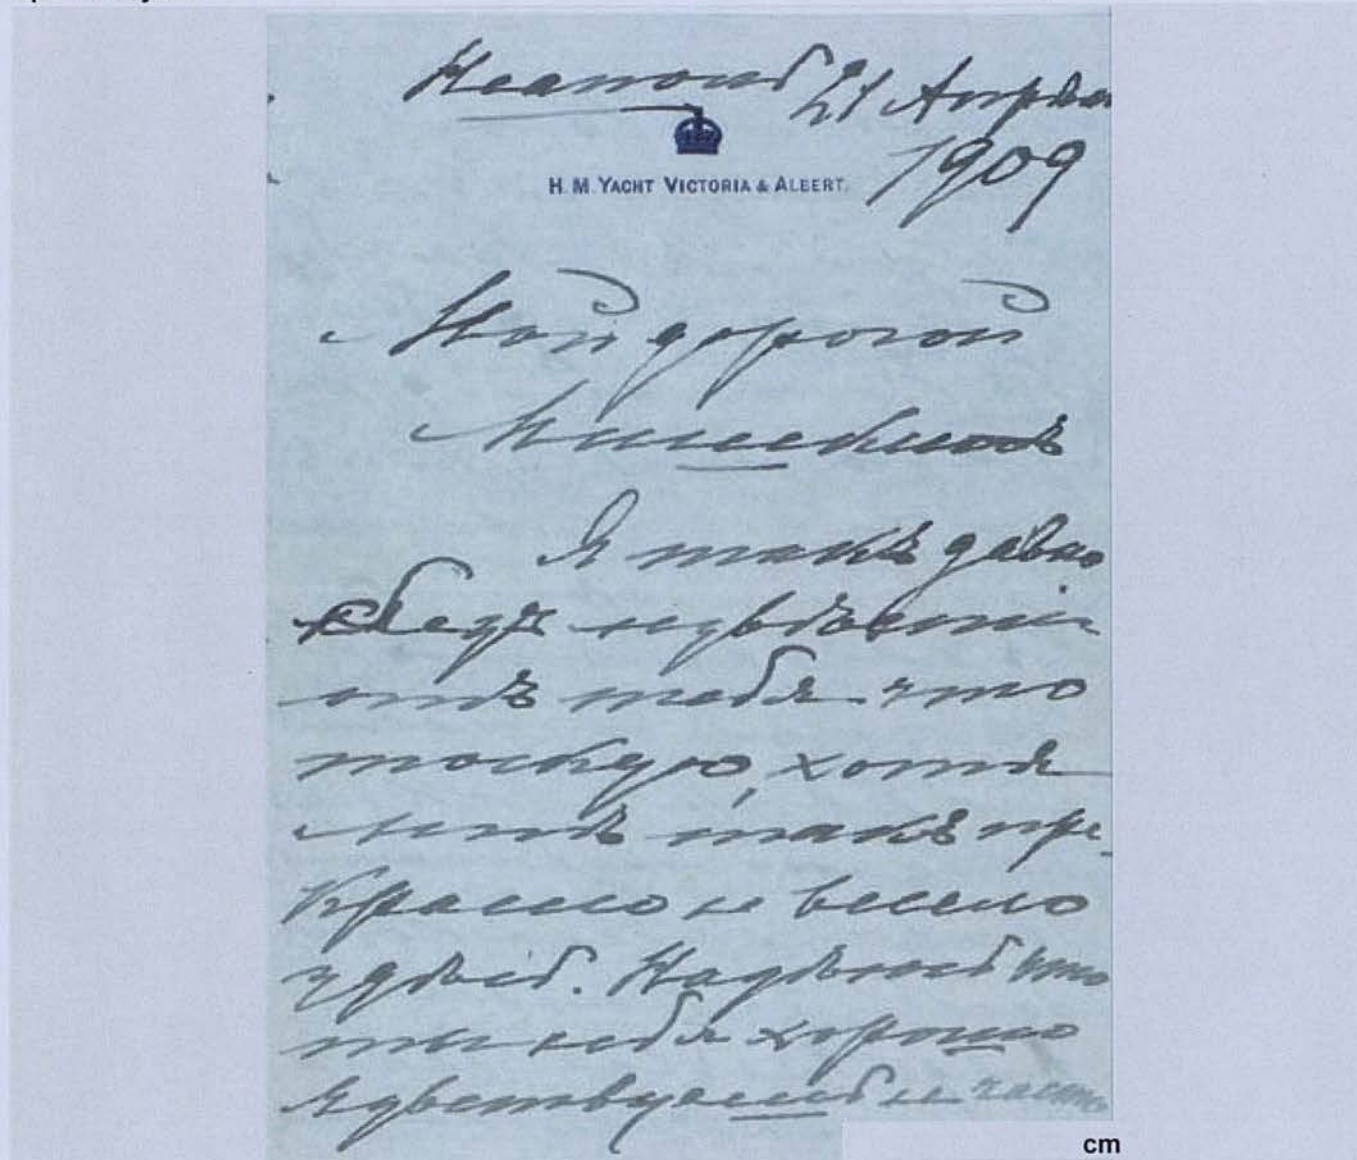 Неаполь 21 Апрѣля
1909
H. M. YACHT VICTORIA & ALBERT.
Мой дорогой
Мишкинъ
Я такъ давно
безъ извѣстій
отъ тебя что
тоскую, хотя
мнѣ такъ пре-
красно и весело
здѣсь. Надѣюсь что
ты себя хорошо
чувствуешь и часто
cm